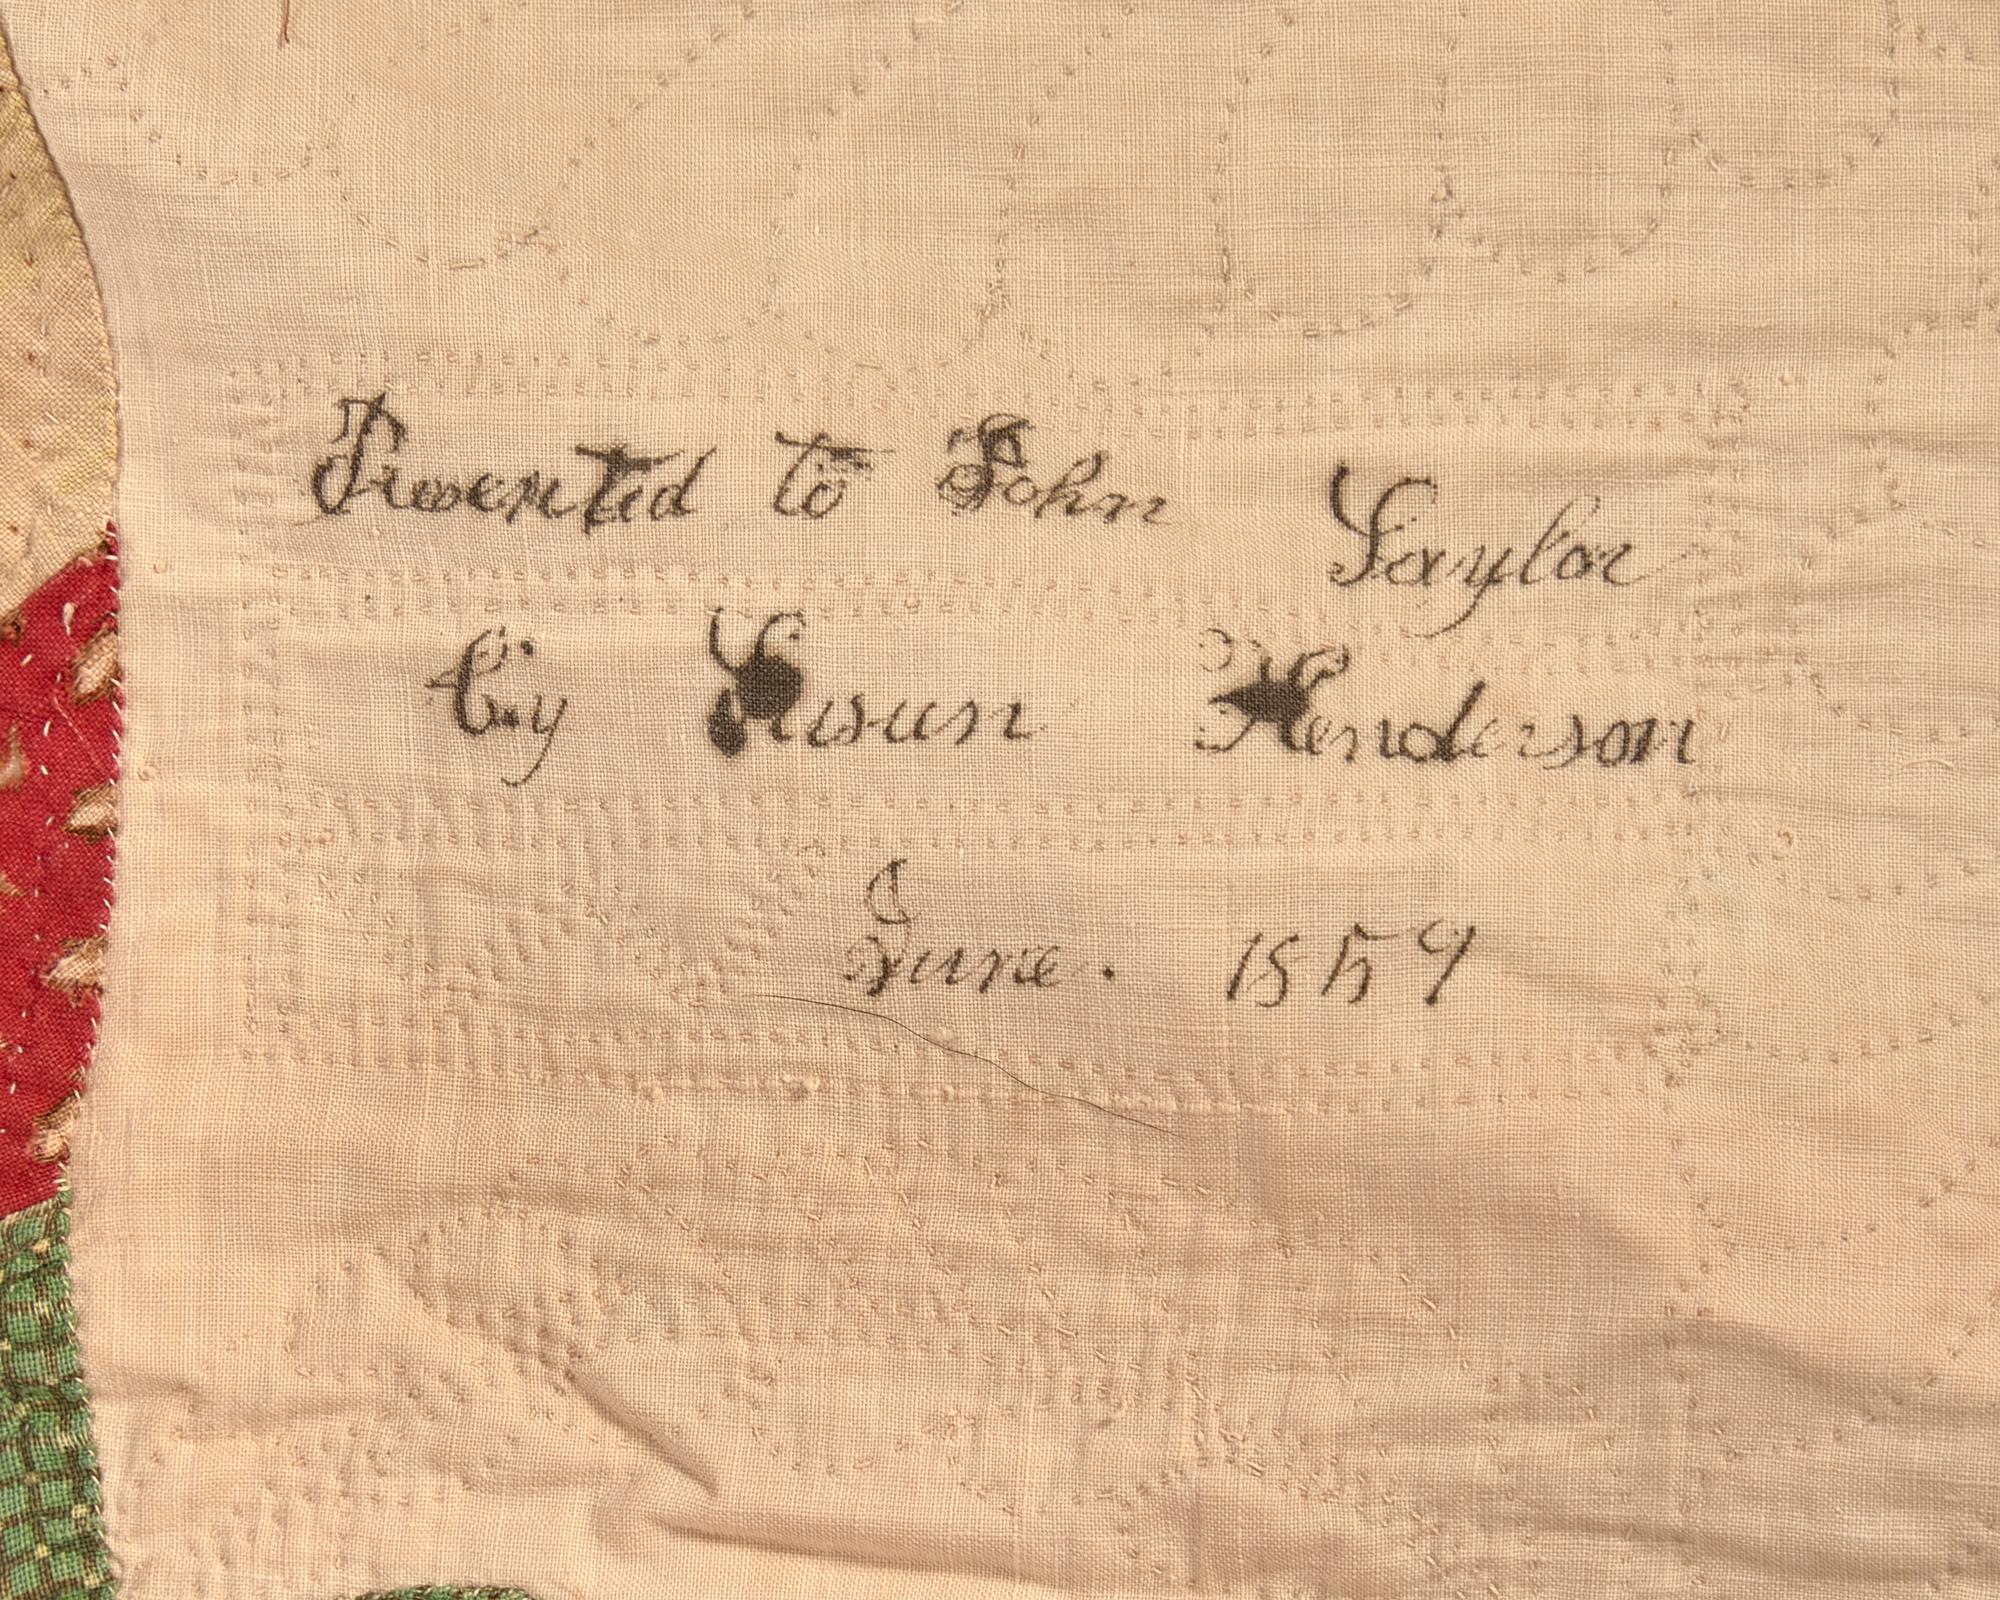 Presented to John Saylor
by Susan Henderson
June. 1859